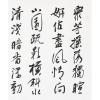 眾芳搖落獨暄
妍佔盡風情向
小園疏影橫斜水
清淺暗香浮動